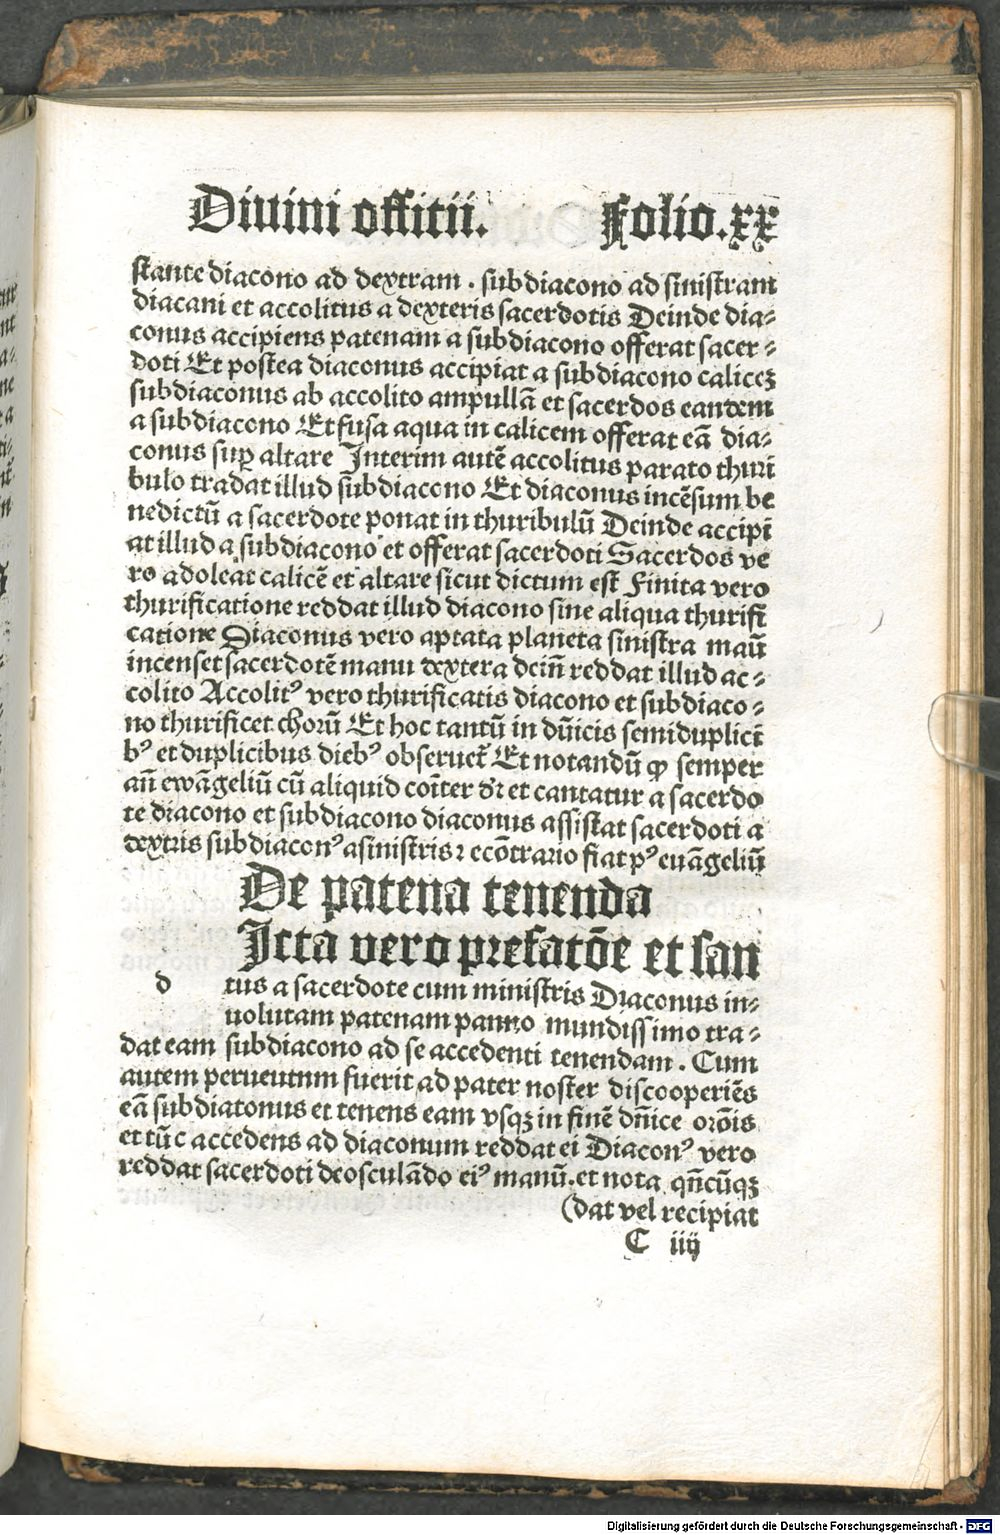 Diuini offitii. Folio.xx
stante diacono ad dextram . subdiacono ad sinistram
diacani et accolitus a dexteris sacerdotis Deinde dia⸗
conus accipiens patenam a subdiacono offerat sacer⸗
doti Et postea diaconus accipiat a subdiacono calicez
subdiaconus ab accolito ampullā et sacerdos eandem
a subdiacono Et fusa aqua in calicem offerat eā dia⸗
conus suꝑ altare Interim autē accolitus parato thuri
bulo tradat illud subdiacono Et diaconus incēsum be
nedictū a sacerdote ponat in thuribulū Deinde accipi
at illud a subdiacono et offerat sacerdoti Sacerdos ve
ro adoleat calicē et altare sicut dictum est Finita vero
thurificatione reddat illud diacono sine aliqua thurifi
catione Diaconus vero aptata planeta sinistra manū
incenset sacerdotē manu dextera dein̄ reddat illud ac⸗
colito Accolitꝰ vero thurificatis diacono et subdiaco⸗
no thurificet chorū Et hoc tantū in dn̄icis semiduplici
bꝰ et duplicibus diebꝰ obseruet̄ Et notandū ꝙ semper
an̄ ewāgeliū cū aliquid cōiter dr̄ et cantatur a sacerdo
te diacono et subdiacono diaconus assistat sacerdoti a
dextris subdiaconꝰ asinistris ⁊ ecōtrario fiat pꝰ euāgeliū
De patena tenenda
Icta vero prefatōe et san
d tus a sacerdote cum ministris Diaconus in⸗
uolutam patenam panno mundissimo tra⸗
dat eam subdiacono ad se accedenti tenendam . Cum
autem peruentnm fuerit ad pater noster discooperiēs
eā subdiatonus et tenens eam vsqꝫ in finē dn̄ice orōis
et tūc accedens ad diaconum reddat ei Diaconꝰ vero
reddat sacerdoti deosculādo eiꝰ manū. et nota qn̄cūqꝫ
(dat vel recipiat
C iiij
Digitalisierung gefördert durch die Deutsche Forschungsgemeinschaft - DFG